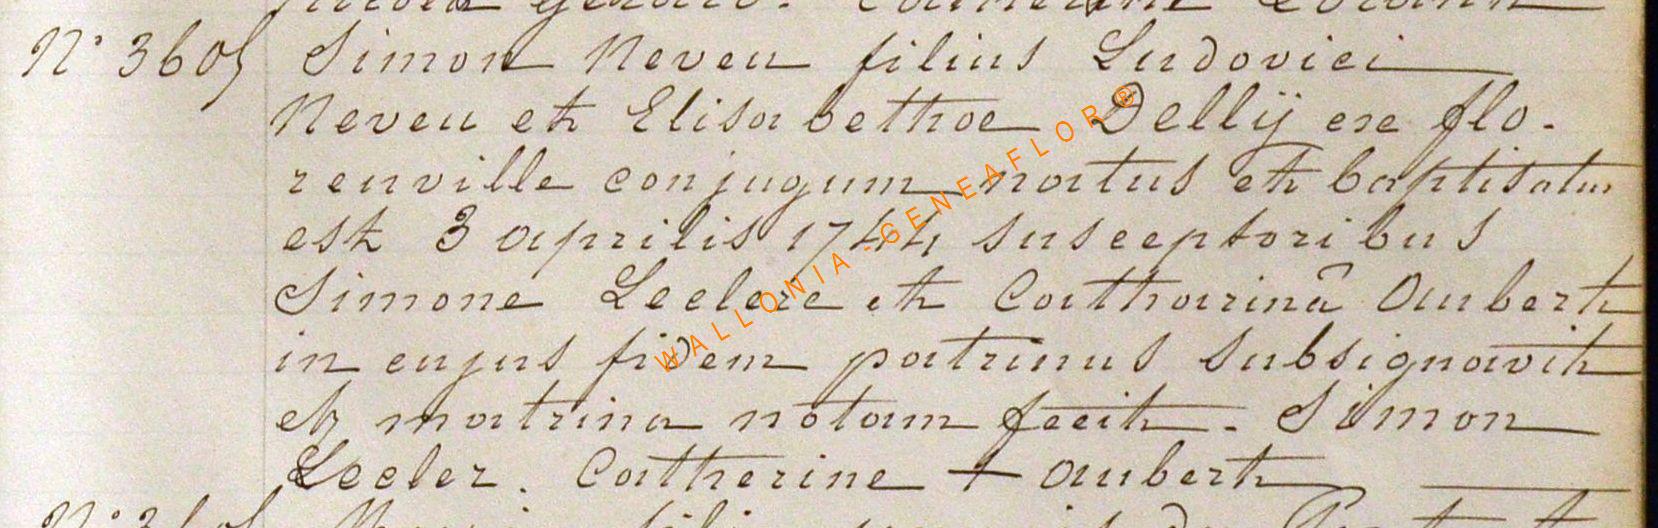 N° 3605 Simon Neveu filius Ludovici
Neveu et Elisabethae Dellÿ ex flo-
renville conjugum natus et baptisatus
est 3 aprilis 1744 susceptoribus
Simone Leclere et Catharinâ Aubert
in cujus fidem patrinus subsignavit
et matrina notam fecit. Simon
Lecler. Catherine + Aubert
WALLONIA-GENEAFLOR®